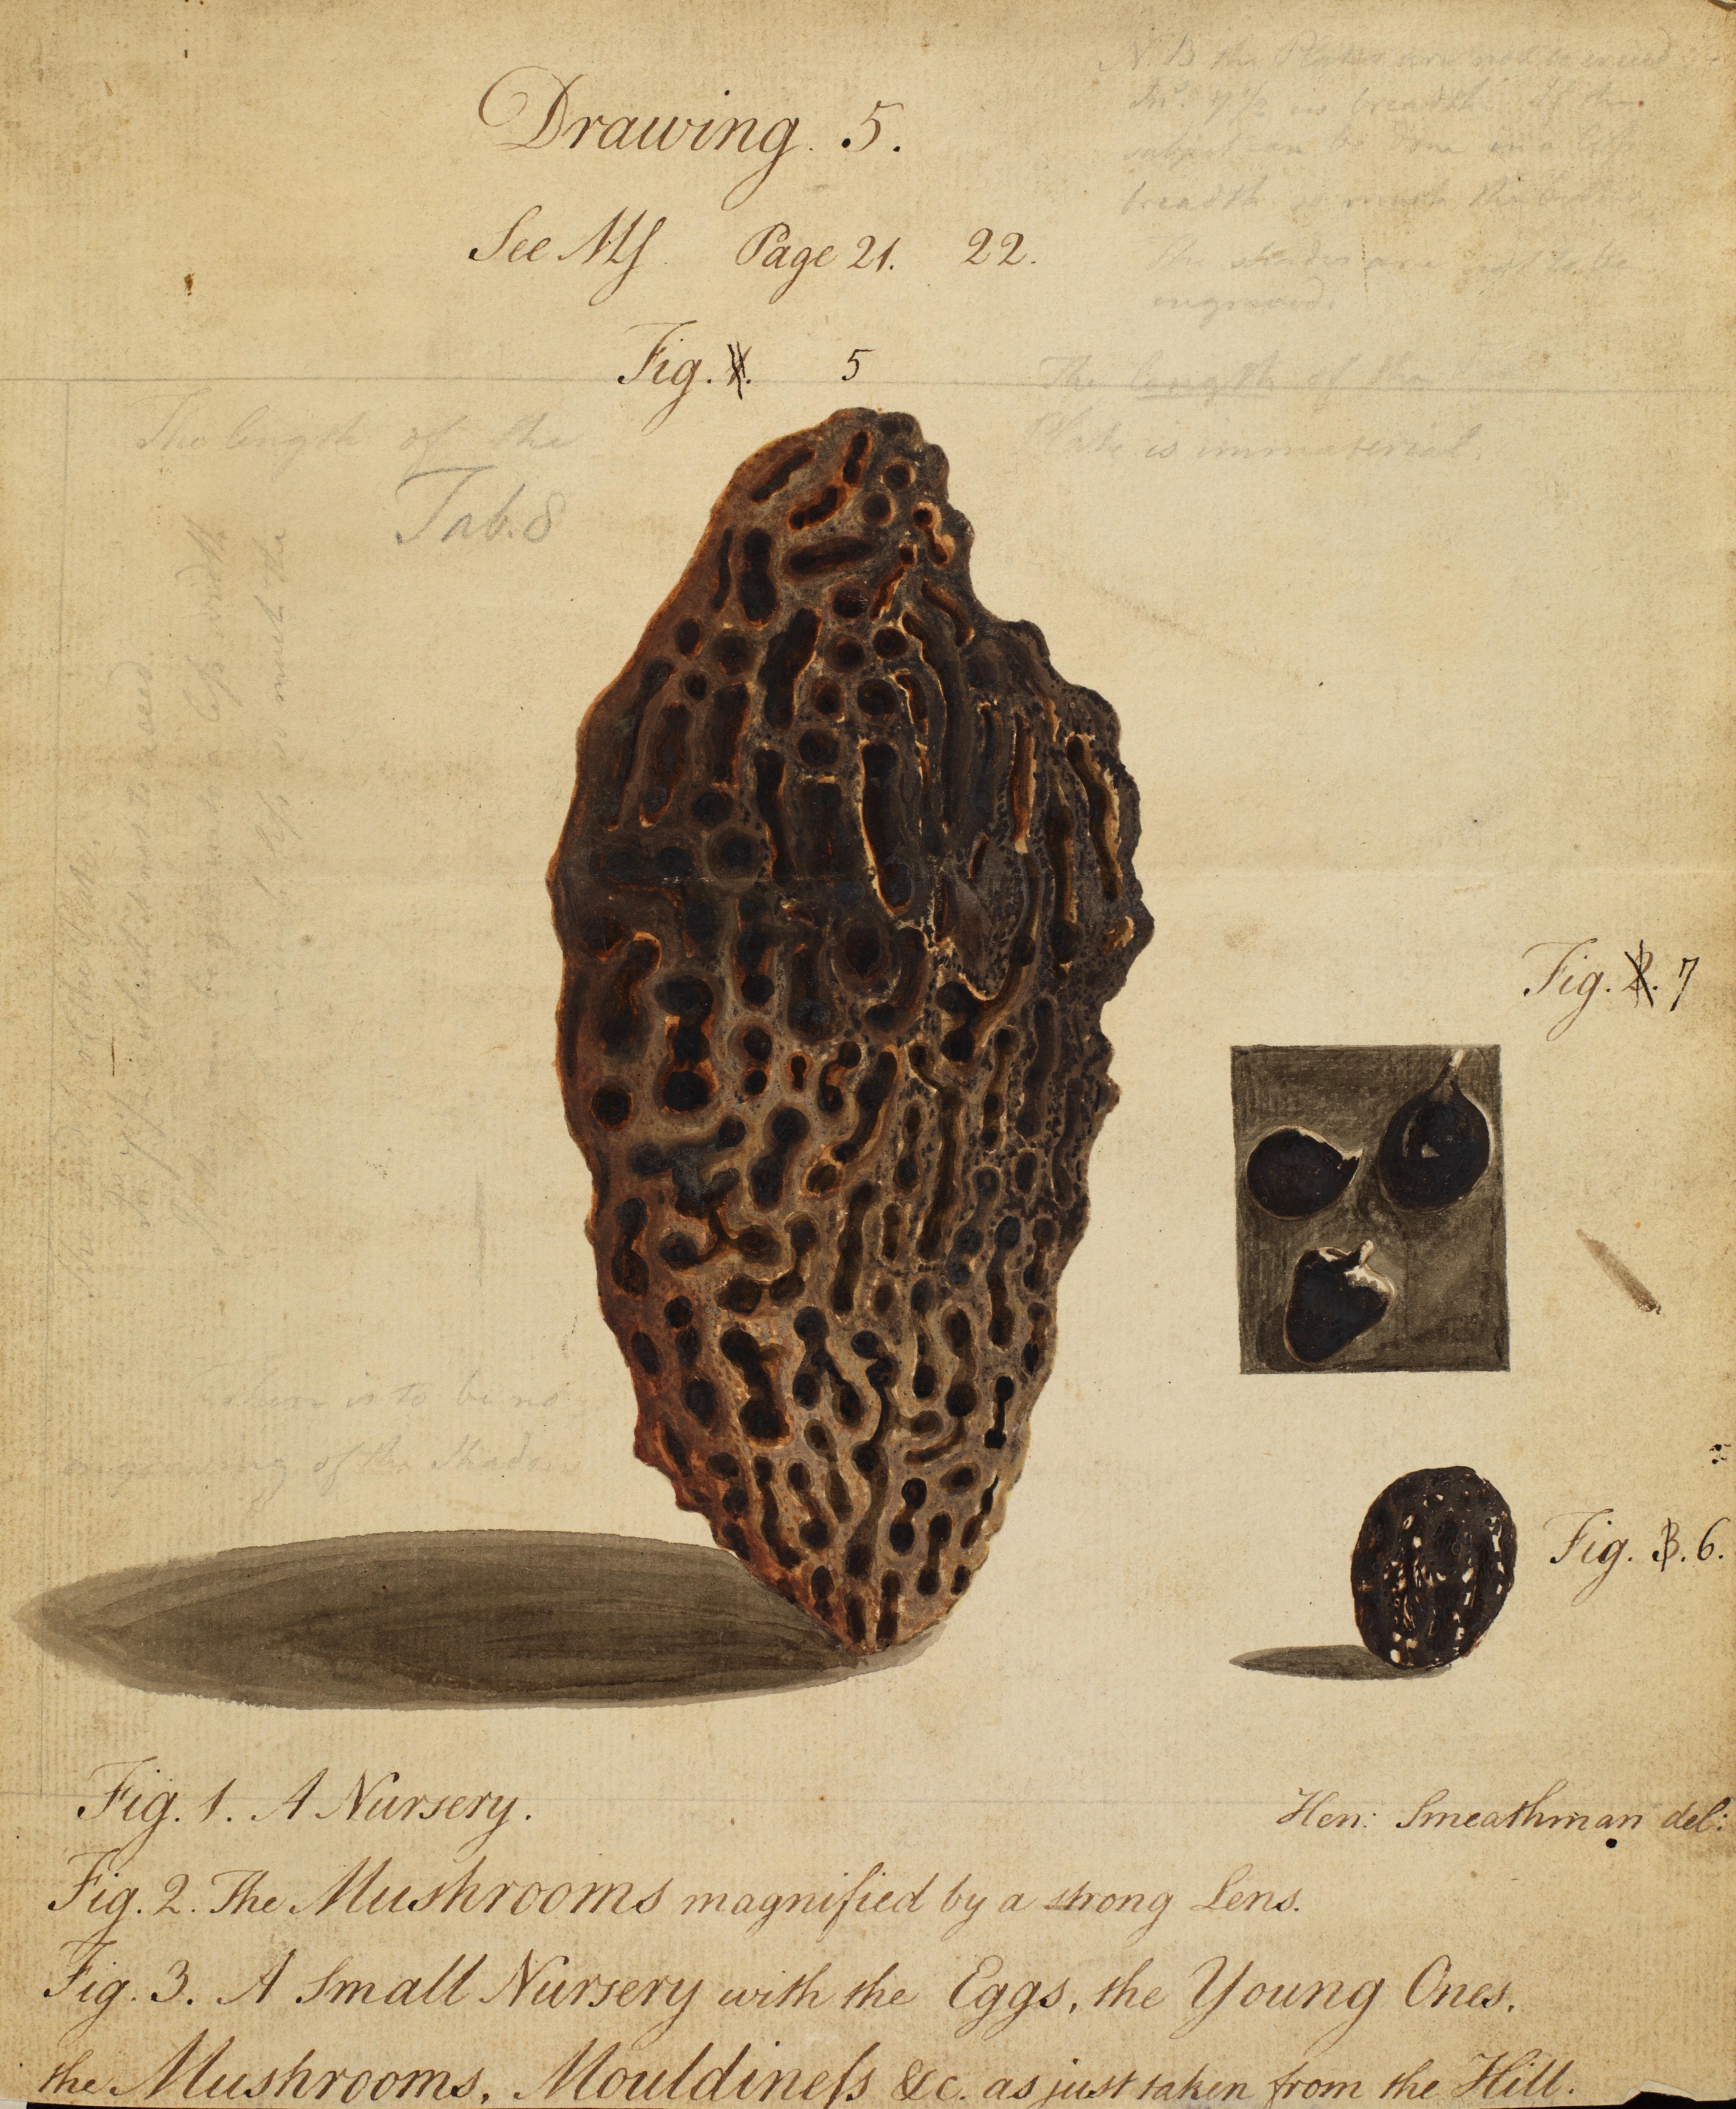 Drawing. 5.
See MS. Page 21. 22.
Fig. 1. 5
N.B the Plates are not to exceed
In.s 7 1/2 in breadth. If the
subject can be done in a less
breadth so much the better
The shades are not to be
engraved.
The length of the
Plate is immaterial.
The length of the
Tab. 8
Fig. 2. 7
There is to be no
engraving of the Shadow
Fig. 3. 6.
Fig. 1. A Nursery.
Hen: Smeathman del:
Fig. 2. The Mushrooms magnified by a strong Lens.
Fig. 3. A Small Nursery with the Eggs, the Young Ones,
the Mushrooms, Mouldineſs &c. as just taken from the Hill.